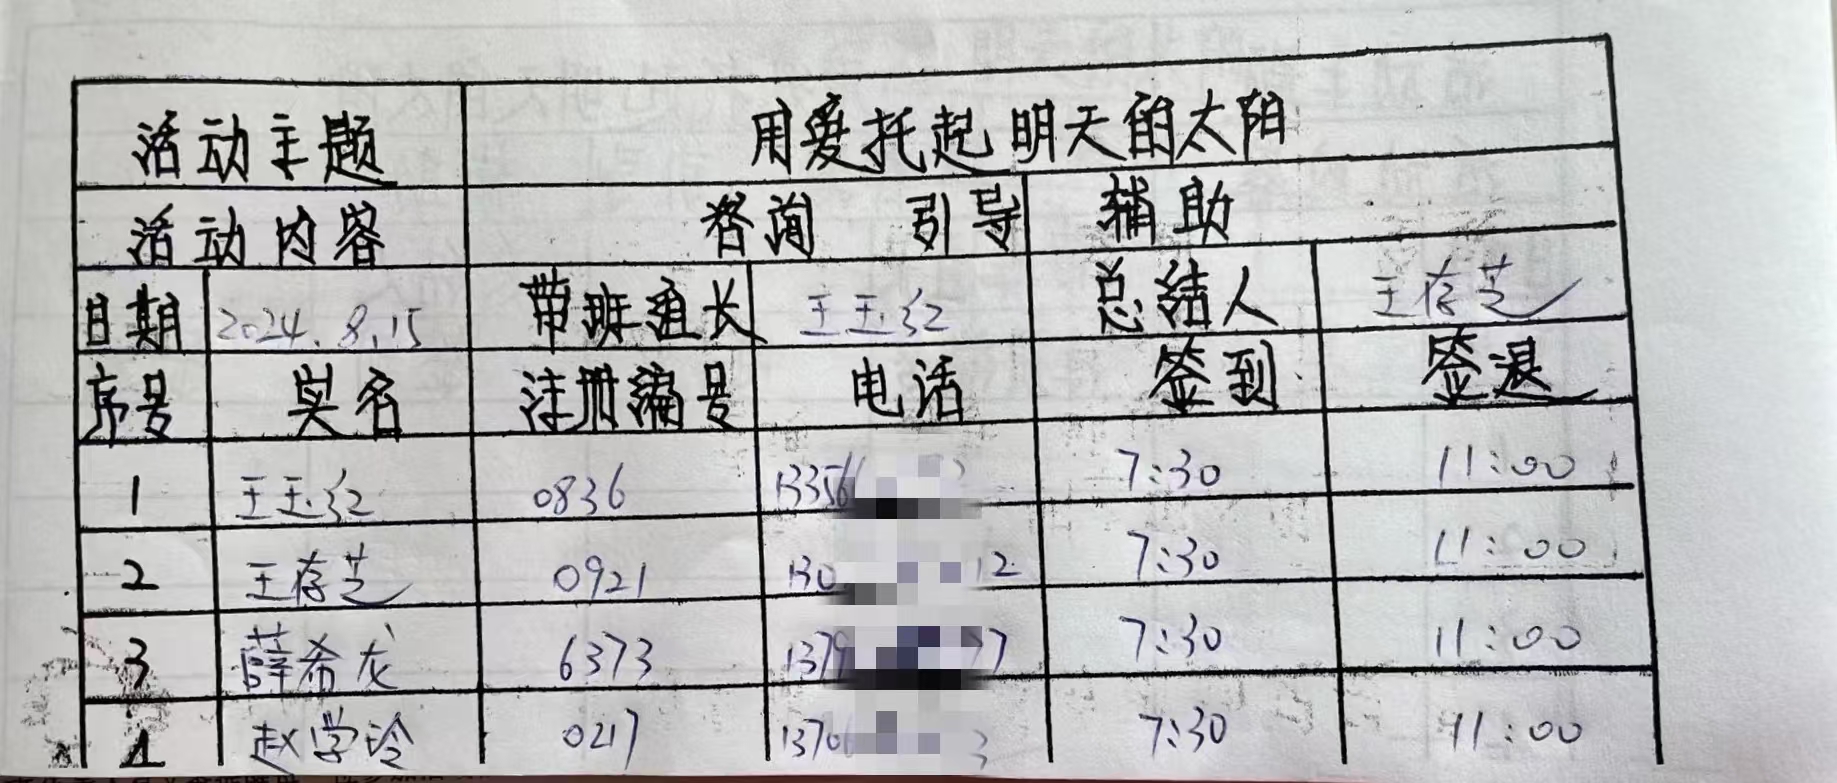 活动主题 用爱托起明天的太阳
活动内容 咨询 引导 辅助
日期 2024.8.15 带班组长 王玉红 总结人 王存芝
序号 姓名 注册编号 电话 签到 签退
1 王玉红 0836 13356 7:30 11:00
2 王存芝 0921 130 12 7:30 11:00
3 薛希龙 6373 1379 77 7:30 11:00
4 赵学玲 0217 1370 3 7:30 11:00